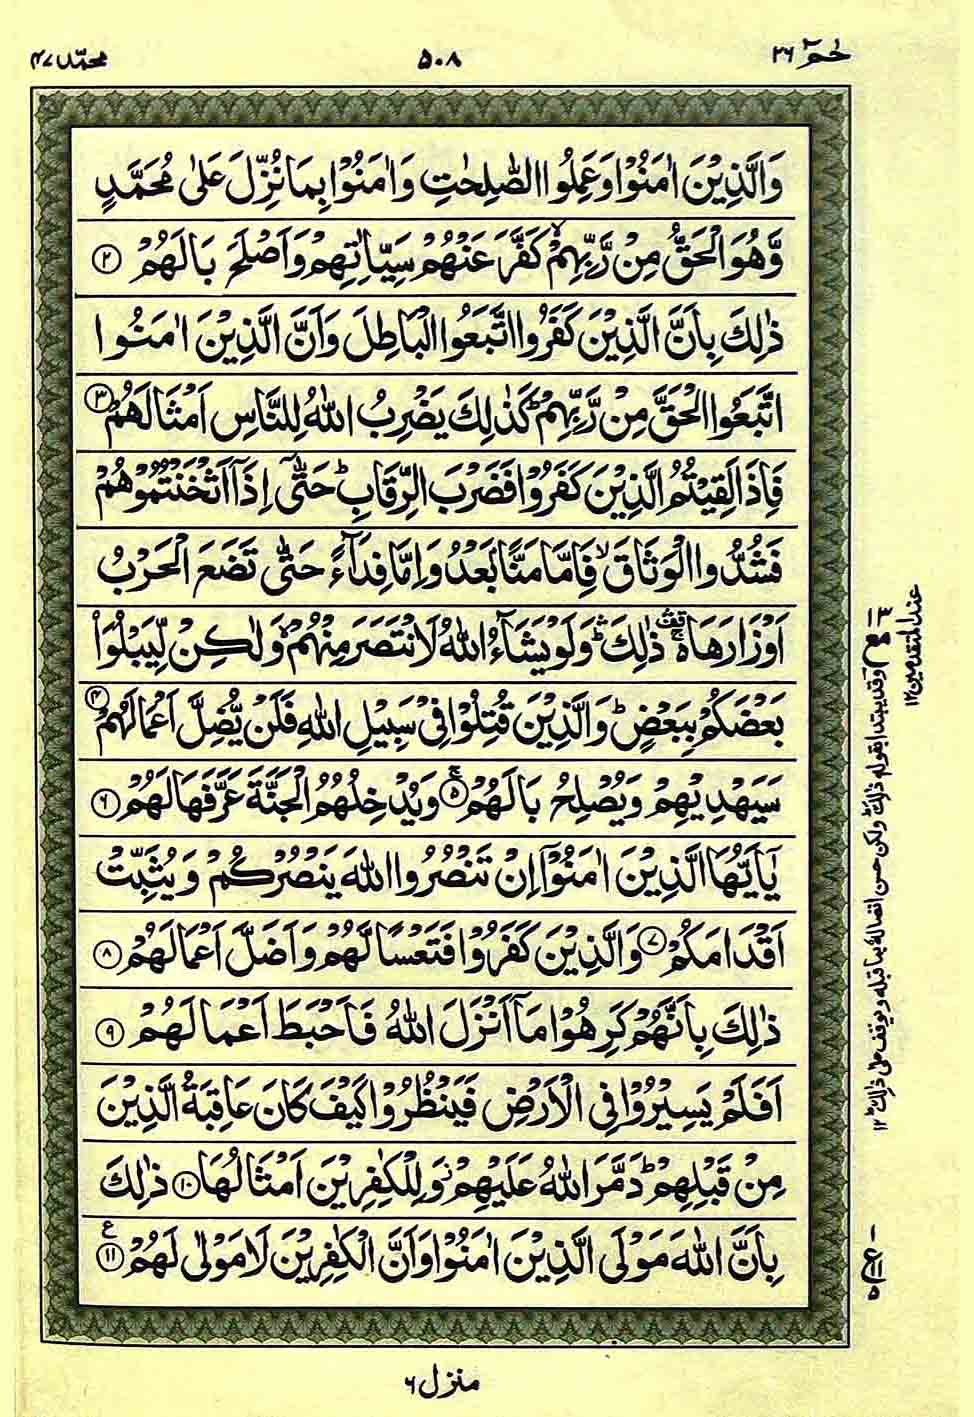 حٰمٓ ٢٦
٥٠٨
محمّد ٤٧
وَالَّذِيْنَ اٰمَنُوْا وَعَمِلُوا الصّٰلِحٰتِ وَاٰمَنُوْا بِمَا نُزِّلَ عَلٰى مُحَمَّدٍ
وَّهُوَ الْحَقُّ مِنْ رَّبِّهِمْ ۙ كَفَّرَ عَنْهُمْ سَيِّاٰتِهِمْ وَاَصْلَحَ بَالَهُمْ ﴿٢﴾
ذٰلِكَ بِاَنَّ الَّذِيْنَ كَفَرُوا اتَّبَعُوا الْبَاطِلَ وَاَنَّ الَّذِيْنَ اٰمَنُوا
اتَّبَعُوا الْحَقَّ مِنْ رَّبِّهِمْ ؕ كَذٰلِكَ يَضْرِبُ اللّٰهُ لِلنَّاسِ اَمْثَالَهُمْ ﴿٣﴾
فَاِذَا لَقِيْتُمُ الَّذِيْنَ كَفَرُوْا فَضَرْبَ الرِّقَابِ ؕ حَتّٰۤى اِذَاۤ اَثْخَنْتُمُوْهُمْ
فَشُدُّوا الْوَثَاقَ ۙ فَاِمَّا مَنًّۢا بَعْدُ وَاِمَّا فِدَآءً حَتّٰى تَضَعَ الْحَرْبُ
اَوْزَارَهَا ۛ۬ۚ ذٰلِكَ ۛؕ وَلَوْ يَشَآءُ اللّٰهُ لَانْتَصَرَ مِنْهُمْ ۙ وَلٰكِنْ لِّيَبْلُوَا۟
بَعْضَكُمْ بِبَعْضٍ ؕ وَالَّذِيْنَ قُتِلُوْا فِيْ سَبِيْلِ اللّٰهِ فَلَنْ يُّضِلَّ اَعْمَالَهُمْ ﴿٤﴾
سَيَهْدِيْهِمْ وَيُصْلِحُ بَالَهُمْ ۚ﴿٥﴾ وَيُدْخِلُهُمُ الْجَنَّةَ عَرَّفَهَا لَهُمْ ﴿٦﴾
يٰۤاَيُّهَا الَّذِيْنَ اٰمَنُوْۤا اِنْ تَنْصُرُوا اللّٰهَ يَنْصُرْكُمْ وَيُثَبِّتْ
اَقْدَامَكُمْ ﴿٧﴾ وَالَّذِيْنَ كَفَرُوْا فَتَعْسًا لَّهُمْ وَاَضَلَّ اَعْمَالَهُمْ ﴿٨﴾
ذٰلِكَ بِاَنَّهُمْ كَرِهُوْا مَاۤ اَنْزَلَ اللّٰهُ فَاَحْبَطَ اَعْمَالَهُمْ ﴿٩﴾
اَفَلَمْ يَسِيْرُوْا فِي الْاَرْضِ فَيَنْظُرُوْا كَيْفَ كَانَ عَاقِبَةُ الَّذِيْنَ
مِنْ قَبْلِهِمْ ؕ دَمَّرَ اللّٰهُ عَلَيْهِمْ ۫ وَلِلْكٰفِرِيْنَ اَمْثَالُهَا ﴿١٠﴾ ذٰلِكَ
بِاَنَّ اللّٰهَ مَوْلَى الَّذِيْنَ اٰمَنُوْا وَاَنَّ الْكٰفِرِيْنَ لَا مَوْلٰى لَهُمْ ﴿١١﴾ ع
عند المتقدمين ١٢
وقد يبتدا بقوله ذٰلك ولكن حسن اتصاله بما قبله ويوقف على ذٰلك ١٢
ع ٥
منزل ٦